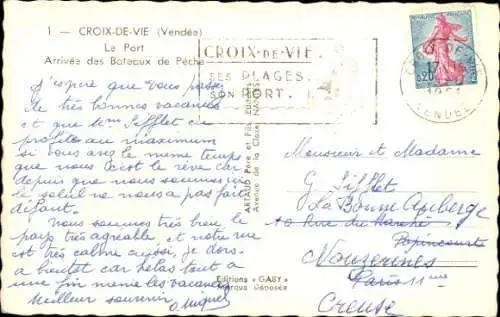 1 — CROIX-DE-VIE (Vendée)
Le Port
Arrivée des Bateaux de Pêche
CROIX-DE-VIE.
SES PLAGES.
SON PORT.
CROIX DE VIE
17
1961
VENDÉE
0,20
J'espère que vous passez
de très bonnes vacances
et que Mme Sifflet en
profite au maximum
si vous avez le même temps
que nous c'est le rêve car
depuis que nous sommes ici
le soleil ne nous a pas fait
défaut.
Nous sommes très bien le
pays très agréable, et notre rue
est très calme aussi, je dors.
a bientôt car hélas tout a
une fin même les vacances
Meilleur souvenir
ARTAUD Père et Fils Editeurs
Avenue de la Close NANTES
Editions "GABY"
Marque Déposée
Monsieur et Madame
G Sifflet
La Bonne Auberge
10 Rue du Marché
Popincourt
Nouzerines
Paris 11ème
Creuse